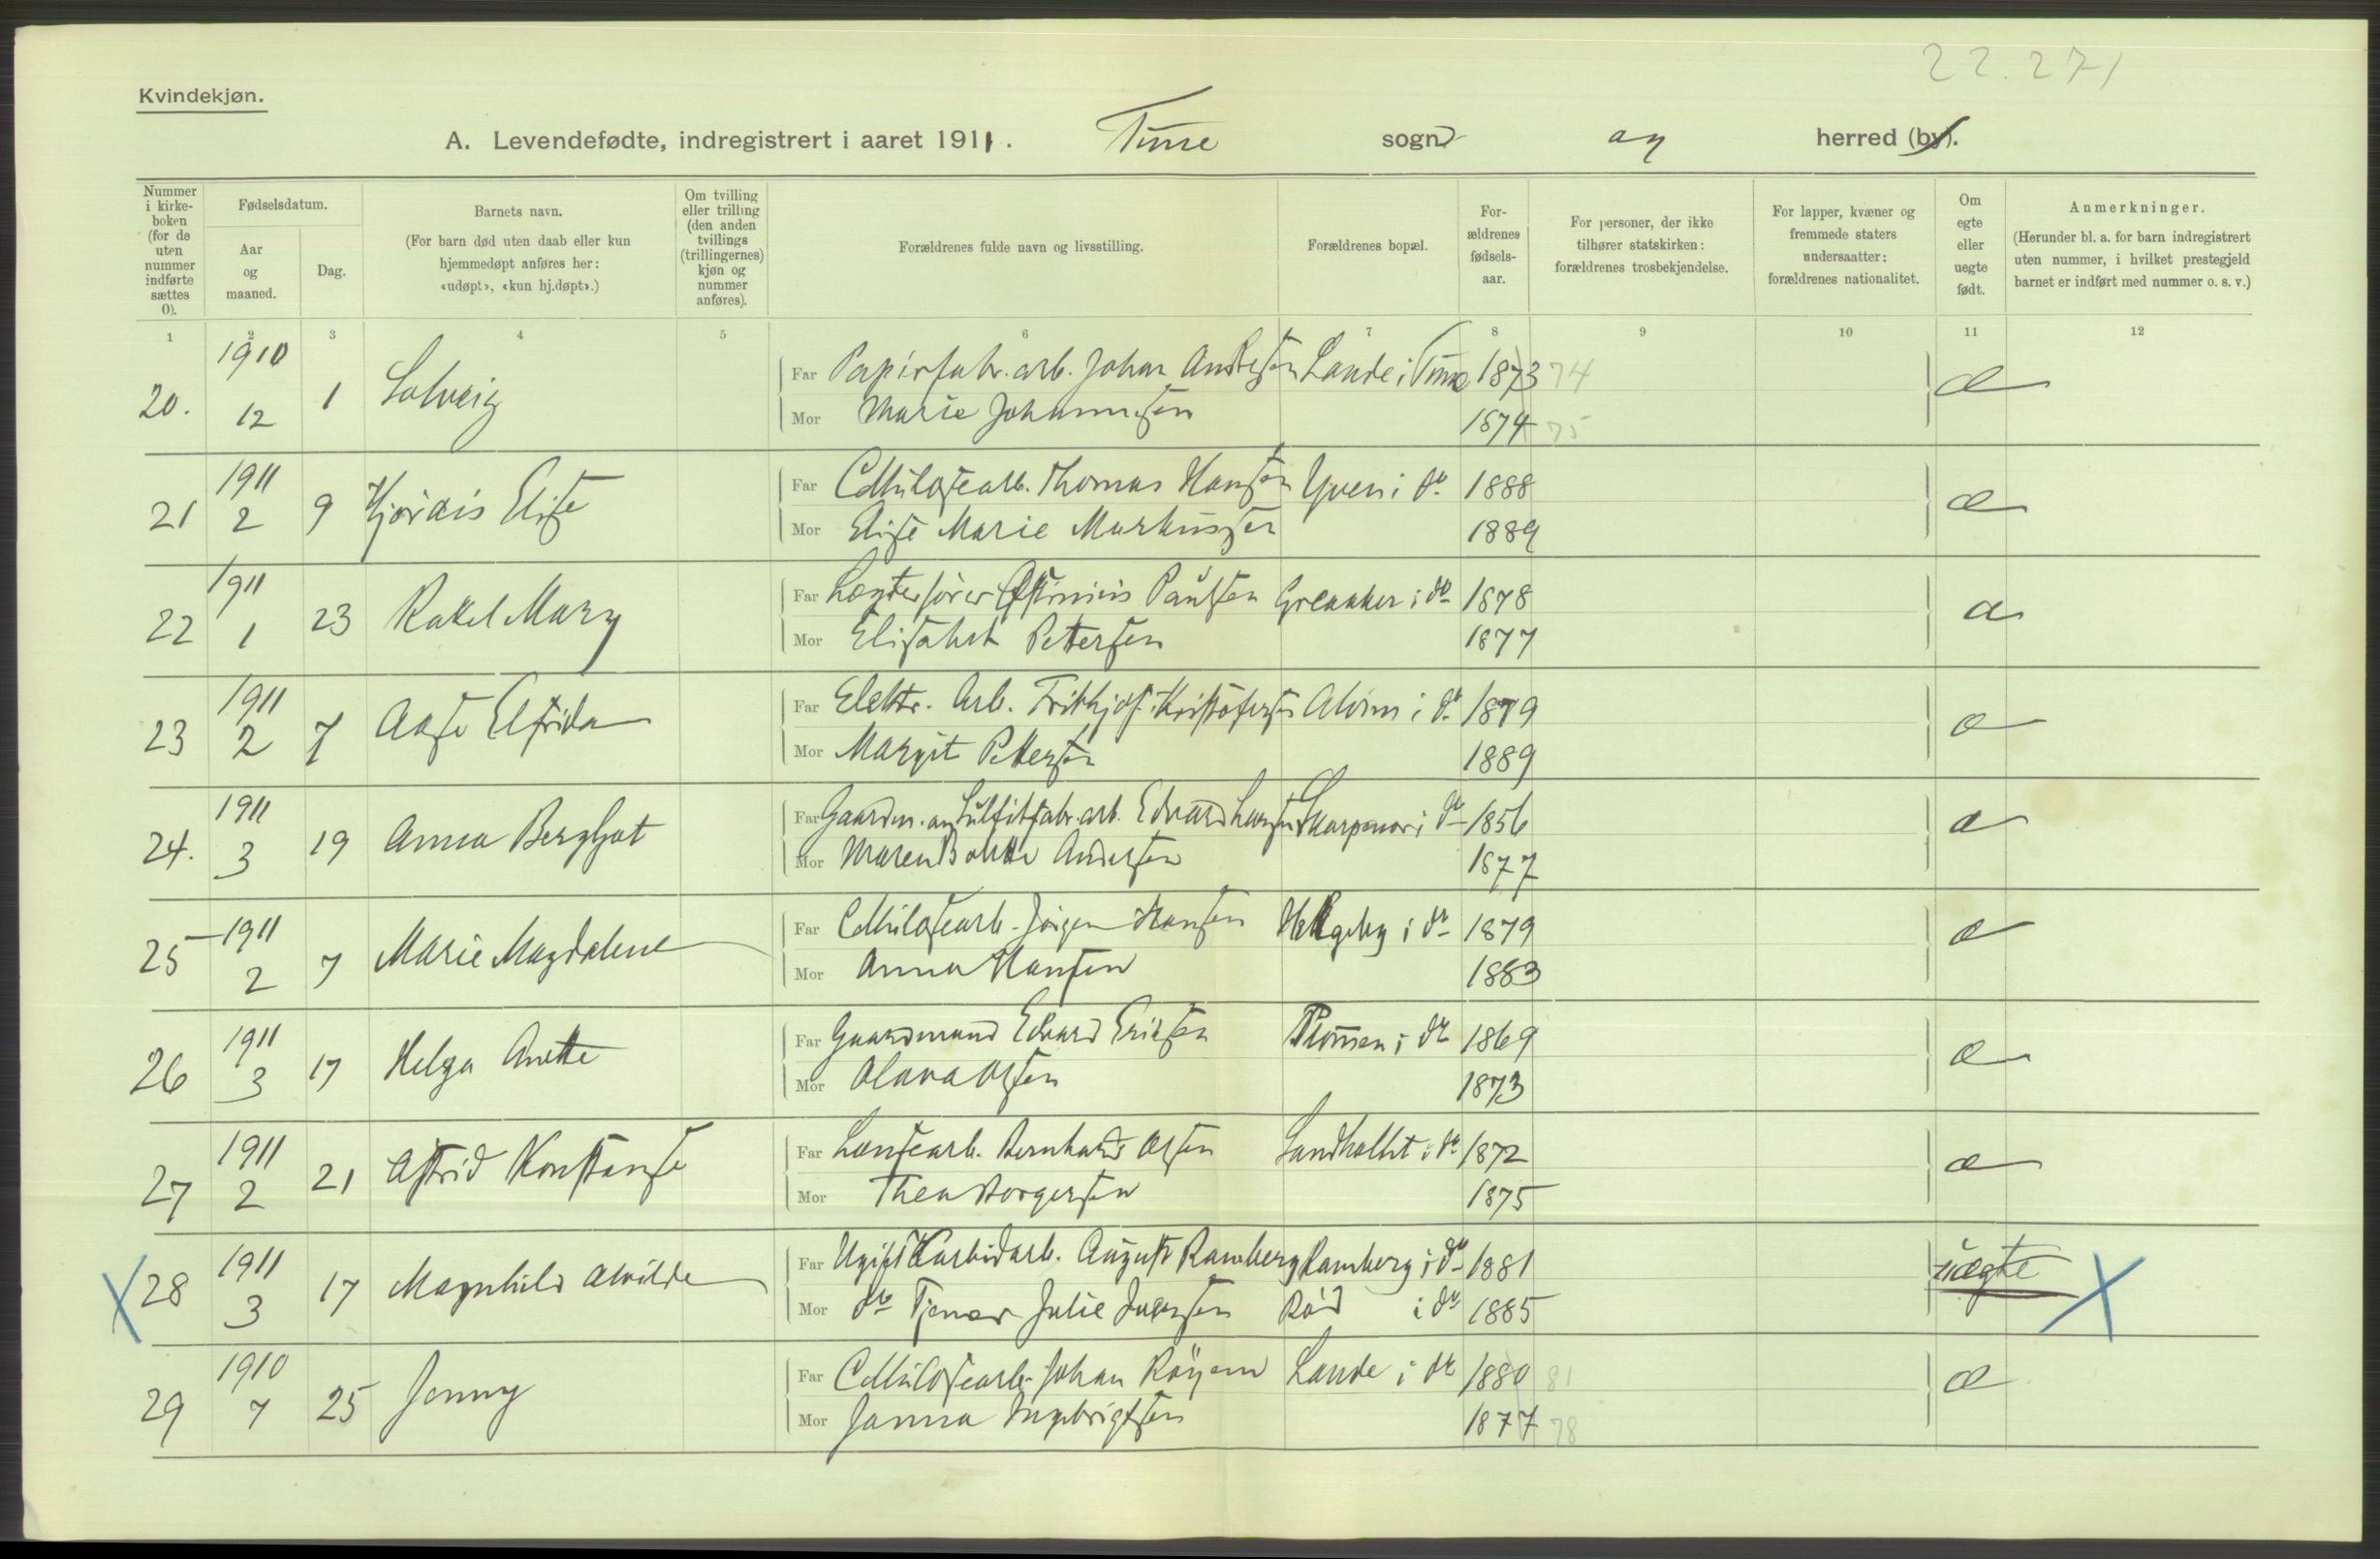 22.271
Kvindekjøn.
A. Levendefødte, indregistrert i aaret 1911. Tune sogn og herred (by).
Nummer i kirke-boken (for de uten nummer indførte sættes 0).
Fødselsdatum.
Aar og maaned.
Dag.
Barnets navn.
(For barn død uten daab eller kun hjemmedøpt anføres her: «udøpt», «kun hj.døpt».)
Om tvilling eller trilling (den anden tvillings (trillingernes) kjøn og nummer anføres).
Forældrenes fulde navn og livsstilling.
Forældrenes bopæl.
For-ældrenes fødsels-aar.
For personer, der ikke tilhører statskirken: forældrenes trosbekjendelse.
For lapper, kvæner og fremmede staters undersaatter: forældrenes nationalitet.
Om egte eller uegte født.
Anmerkninger.
(Herunder bl. a. for barn indregistrert uten nummer, i hvilket prestegjeld barnet er indført med nummer o. s. v.)
1 2 3 4 5 6 7 8 9 10 11 12
20. 1910 12 1 Solveig Far Papirfabr. arb. Johan Andresen Lande i Tune 1873 74 æ
Mor Marie Johannesen 1874 75
21 1911 2 9 Hjørdis Elise Far Cellulosearb. Thomas Hansen Yven i do 1888 æ
Mor Elise Marie Markussen 1889
22 1911 1 23 Rakel Mary Far Lægterfører Paulsen Greaaker i do 1878 æ
Mor Elisabet Pettersen 1877
23 1911 2 7 Aase Elfrida Far Elektr. Arb. Frithjof Kristofersen Alvim i do 1879 æ
Mor Margit Pettersen 1889
24. 1911 3 19 Anna Bergljot Far Gaardm. og Sulfitfabr. arb. Edvard Larsen Skarpenor i do 1856 æ
Mor Maren Andersen 1877
25 1911 2 7 Marie Magdalene Far Cellulosearb. Jørgen Hansen i do 1879 æ
Mor Anna Hansen 1883
26 1911 3 17 Helga Anette Far Gaardmand Edvard Eriksen i do 1869 æ
Mor Olava Olsen 1873
27 1911 2 21 Astrid Konstanse Far Lensearb. Bernhard Olsen Sandkollet i do 1872 æ
Mor Thea Borgersen 1875
28 1911 3 17 Magnhild Alvilde Far Ugift Karbidarb. August Ramberg Ramberg i do 1881 uægte
Mor do Tjener Julie Rød i do 1885
29 1910 7 25 Jenny Far Cellulosearb. Johan Røyem Lande i do 1880 81 æ
Mor Janna Ingebrigtsen 1877 78